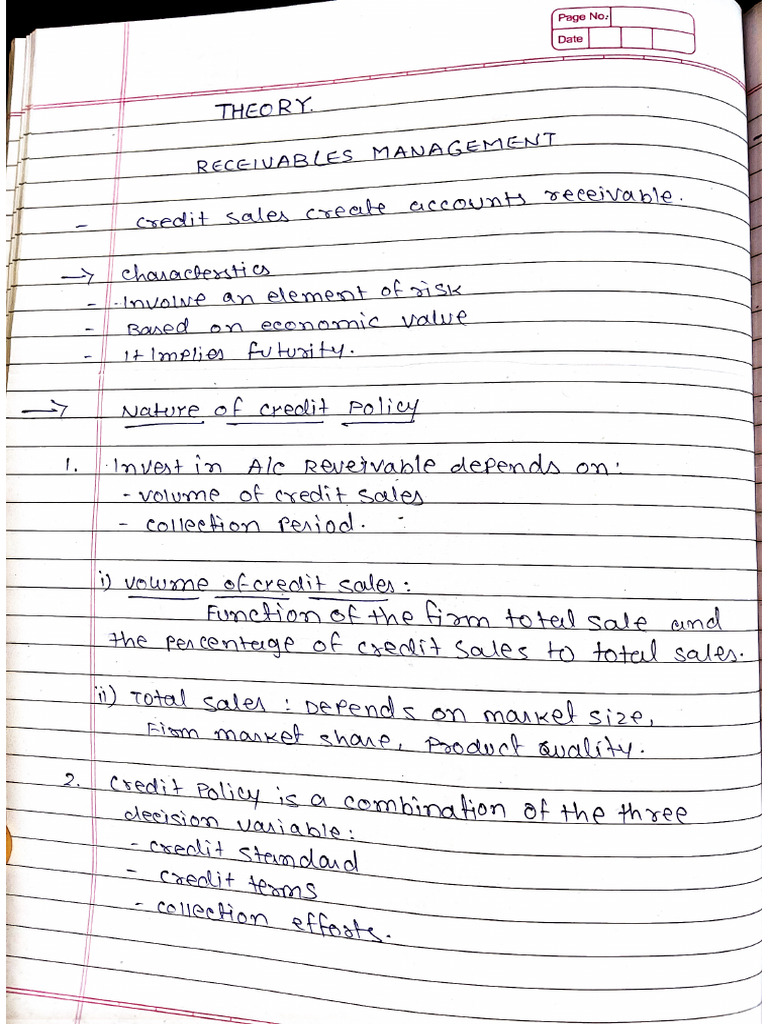 Page No:
Date
THEORY.
RECEIVABLES MANAGEMENT
- credit sales create accounts receivable.
→ characterstics
- Involve an element of risk
- Based on economic value
- It Implies futurity.
→ Nature of credit Policy
1. Invest in A/c Reveivable depends on:
- volume of credit sales
- collection Period.
i) volume of credit sales:
Function of the firm total sale and
the percentage of credit sales to total sales.
ii) Total sales: Depends on market size,
Firm market share, Product Quality.
2. Credit Policy is a combination of the three
decision variable:
- credit standard
- credit terms
- collection efforts.